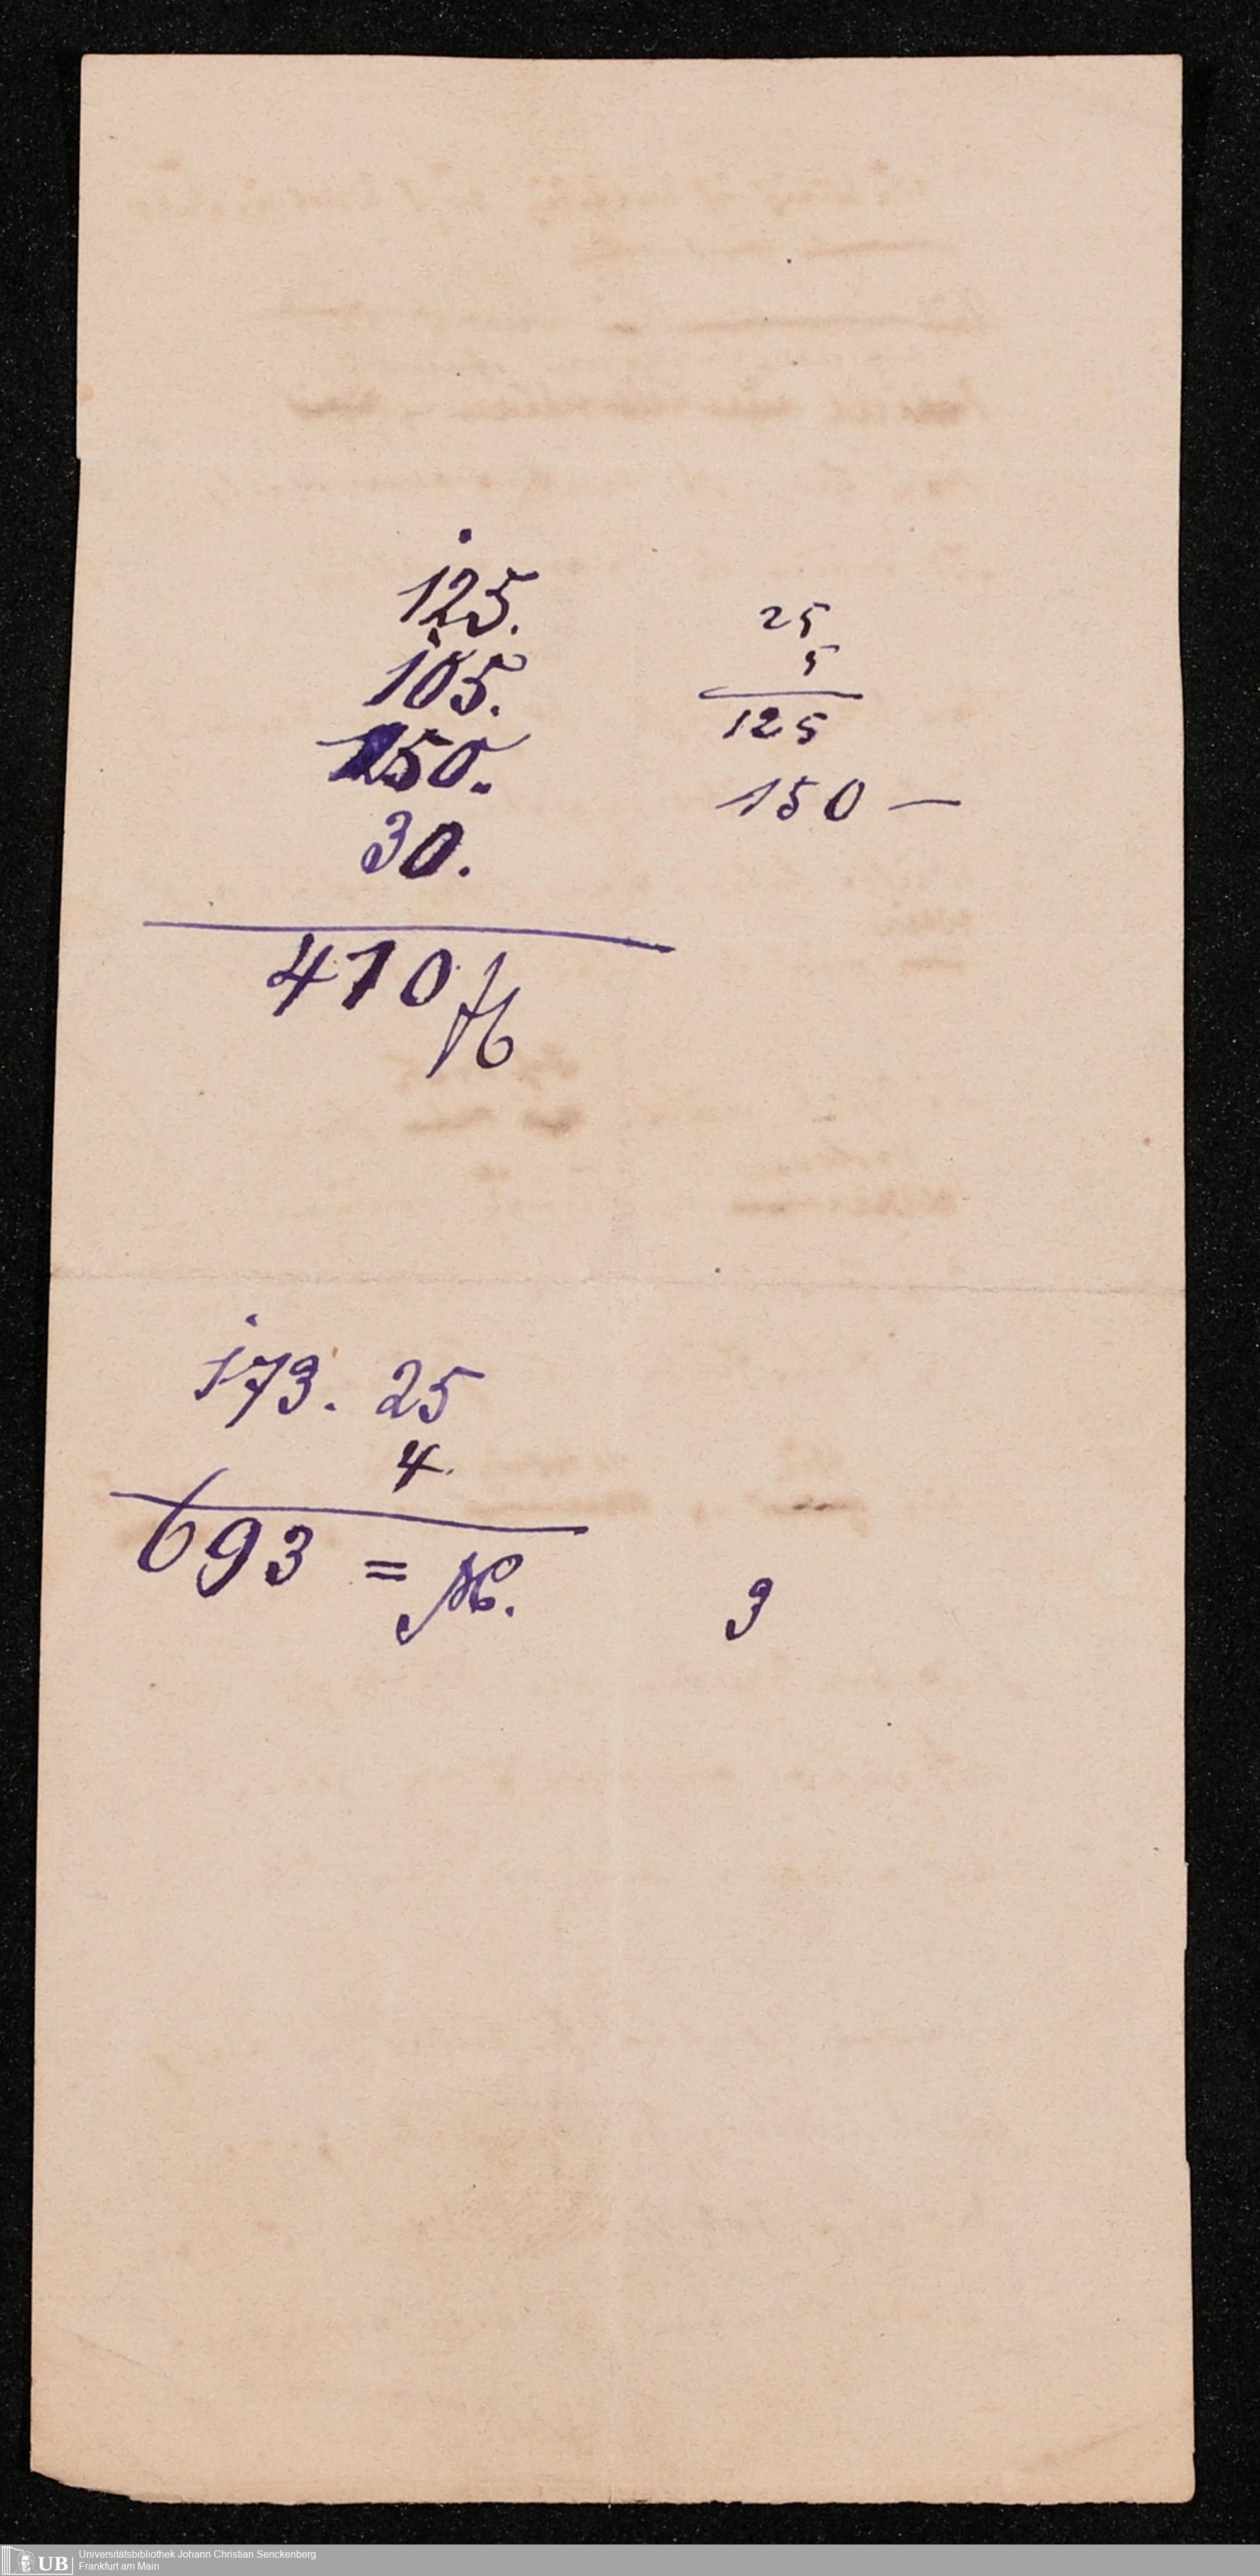 125.
105.
150.
30.
410 ℔
25
5
125
150 —
173. 25
4.
693 = M.
3
UB
Universitätsbibliothek Johann Christian Senckenberg
Frankfurt am Main